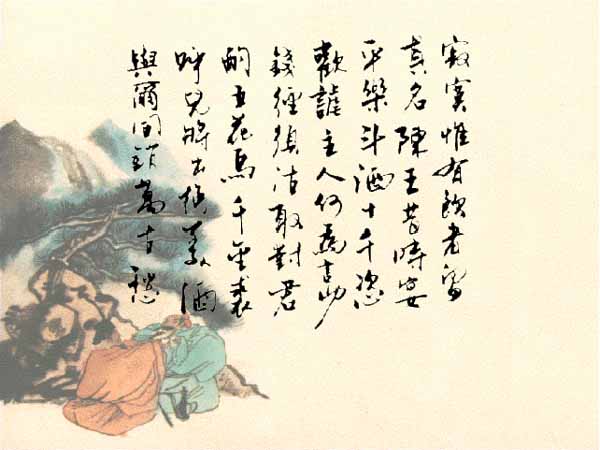 寂寞惟有飲者留
其名陳王昔時宴
平樂斗酒十千恣
歡謔主人何爲言少
錢徑須沽取對君
酌五花馬千金裘
呼兒將出換美酒
與爾同銷萬古愁